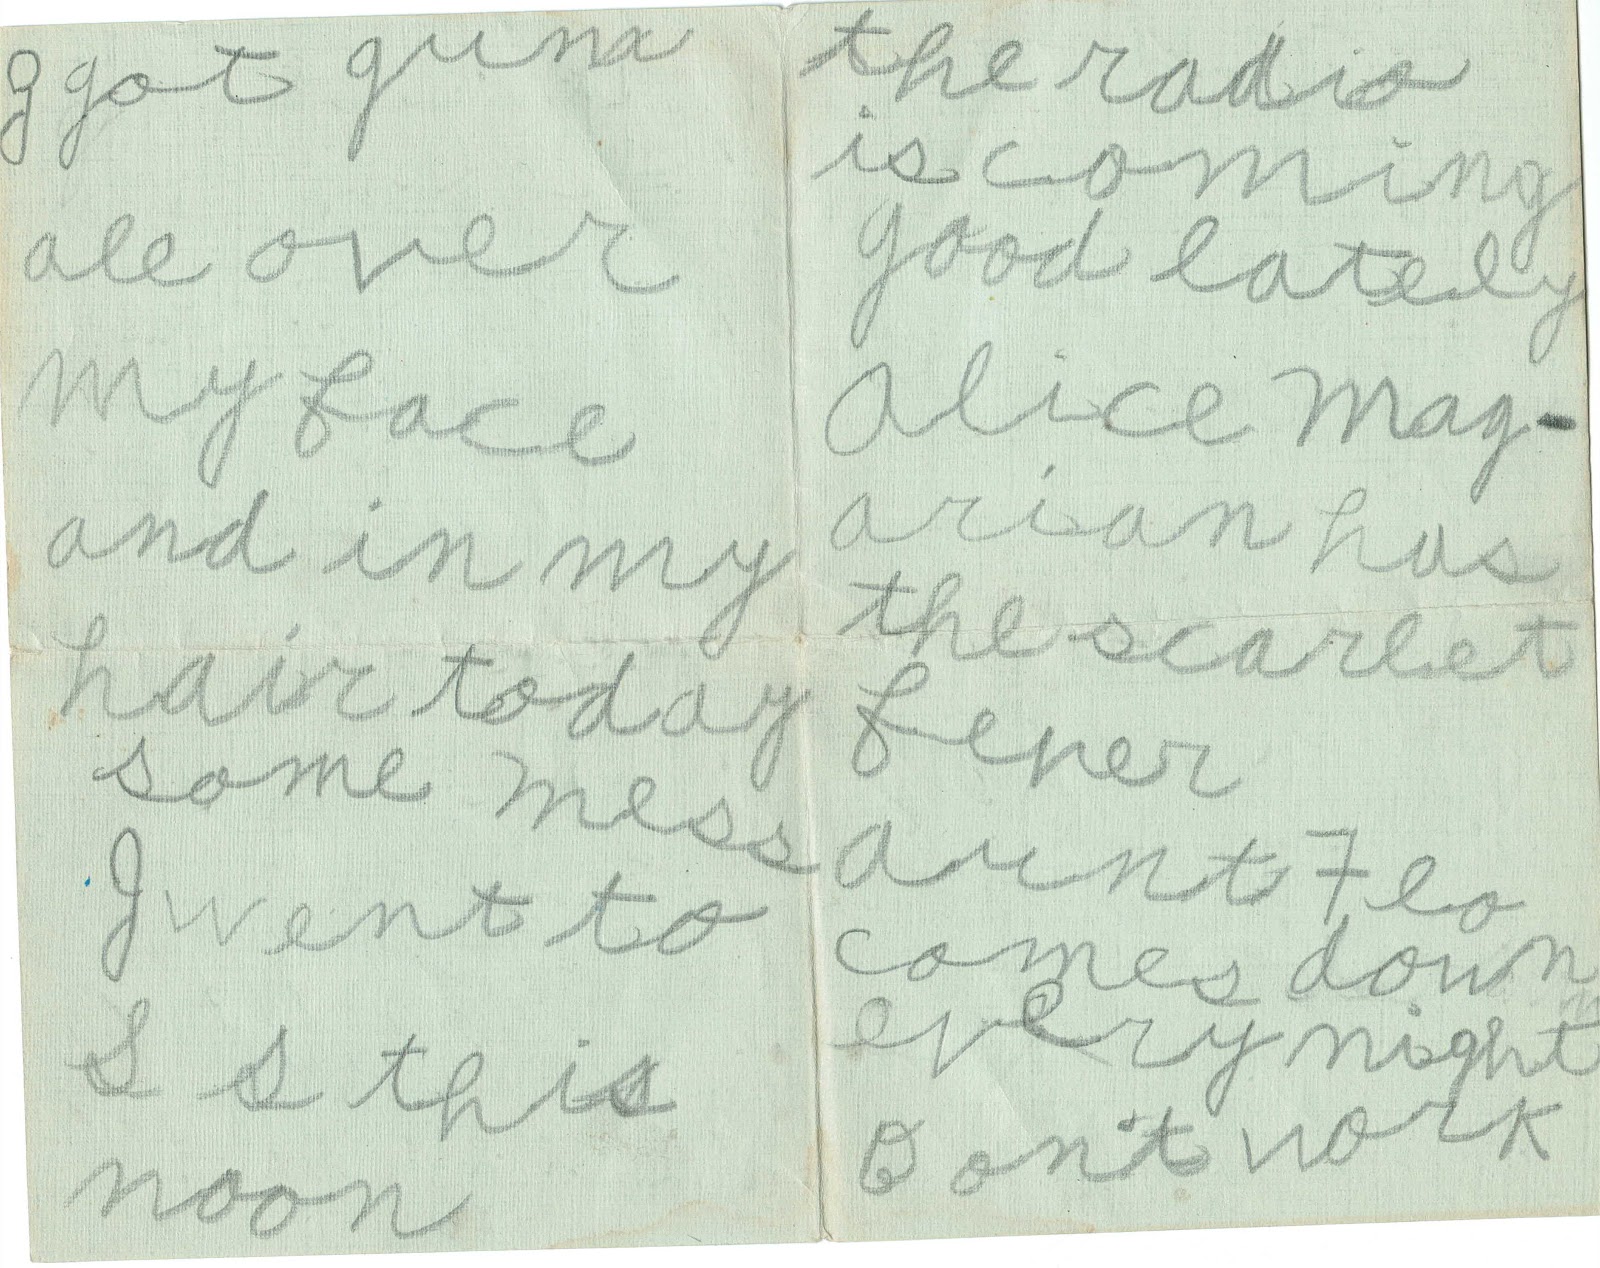 I got gum
all over
my face
and in my
hair today
some mess
I went to
S S this
noon
the radio
is coming
good lately
Alice Mag-
arian has
the scarlet
fever
Aunt Flo
comes down
every night
Don't work